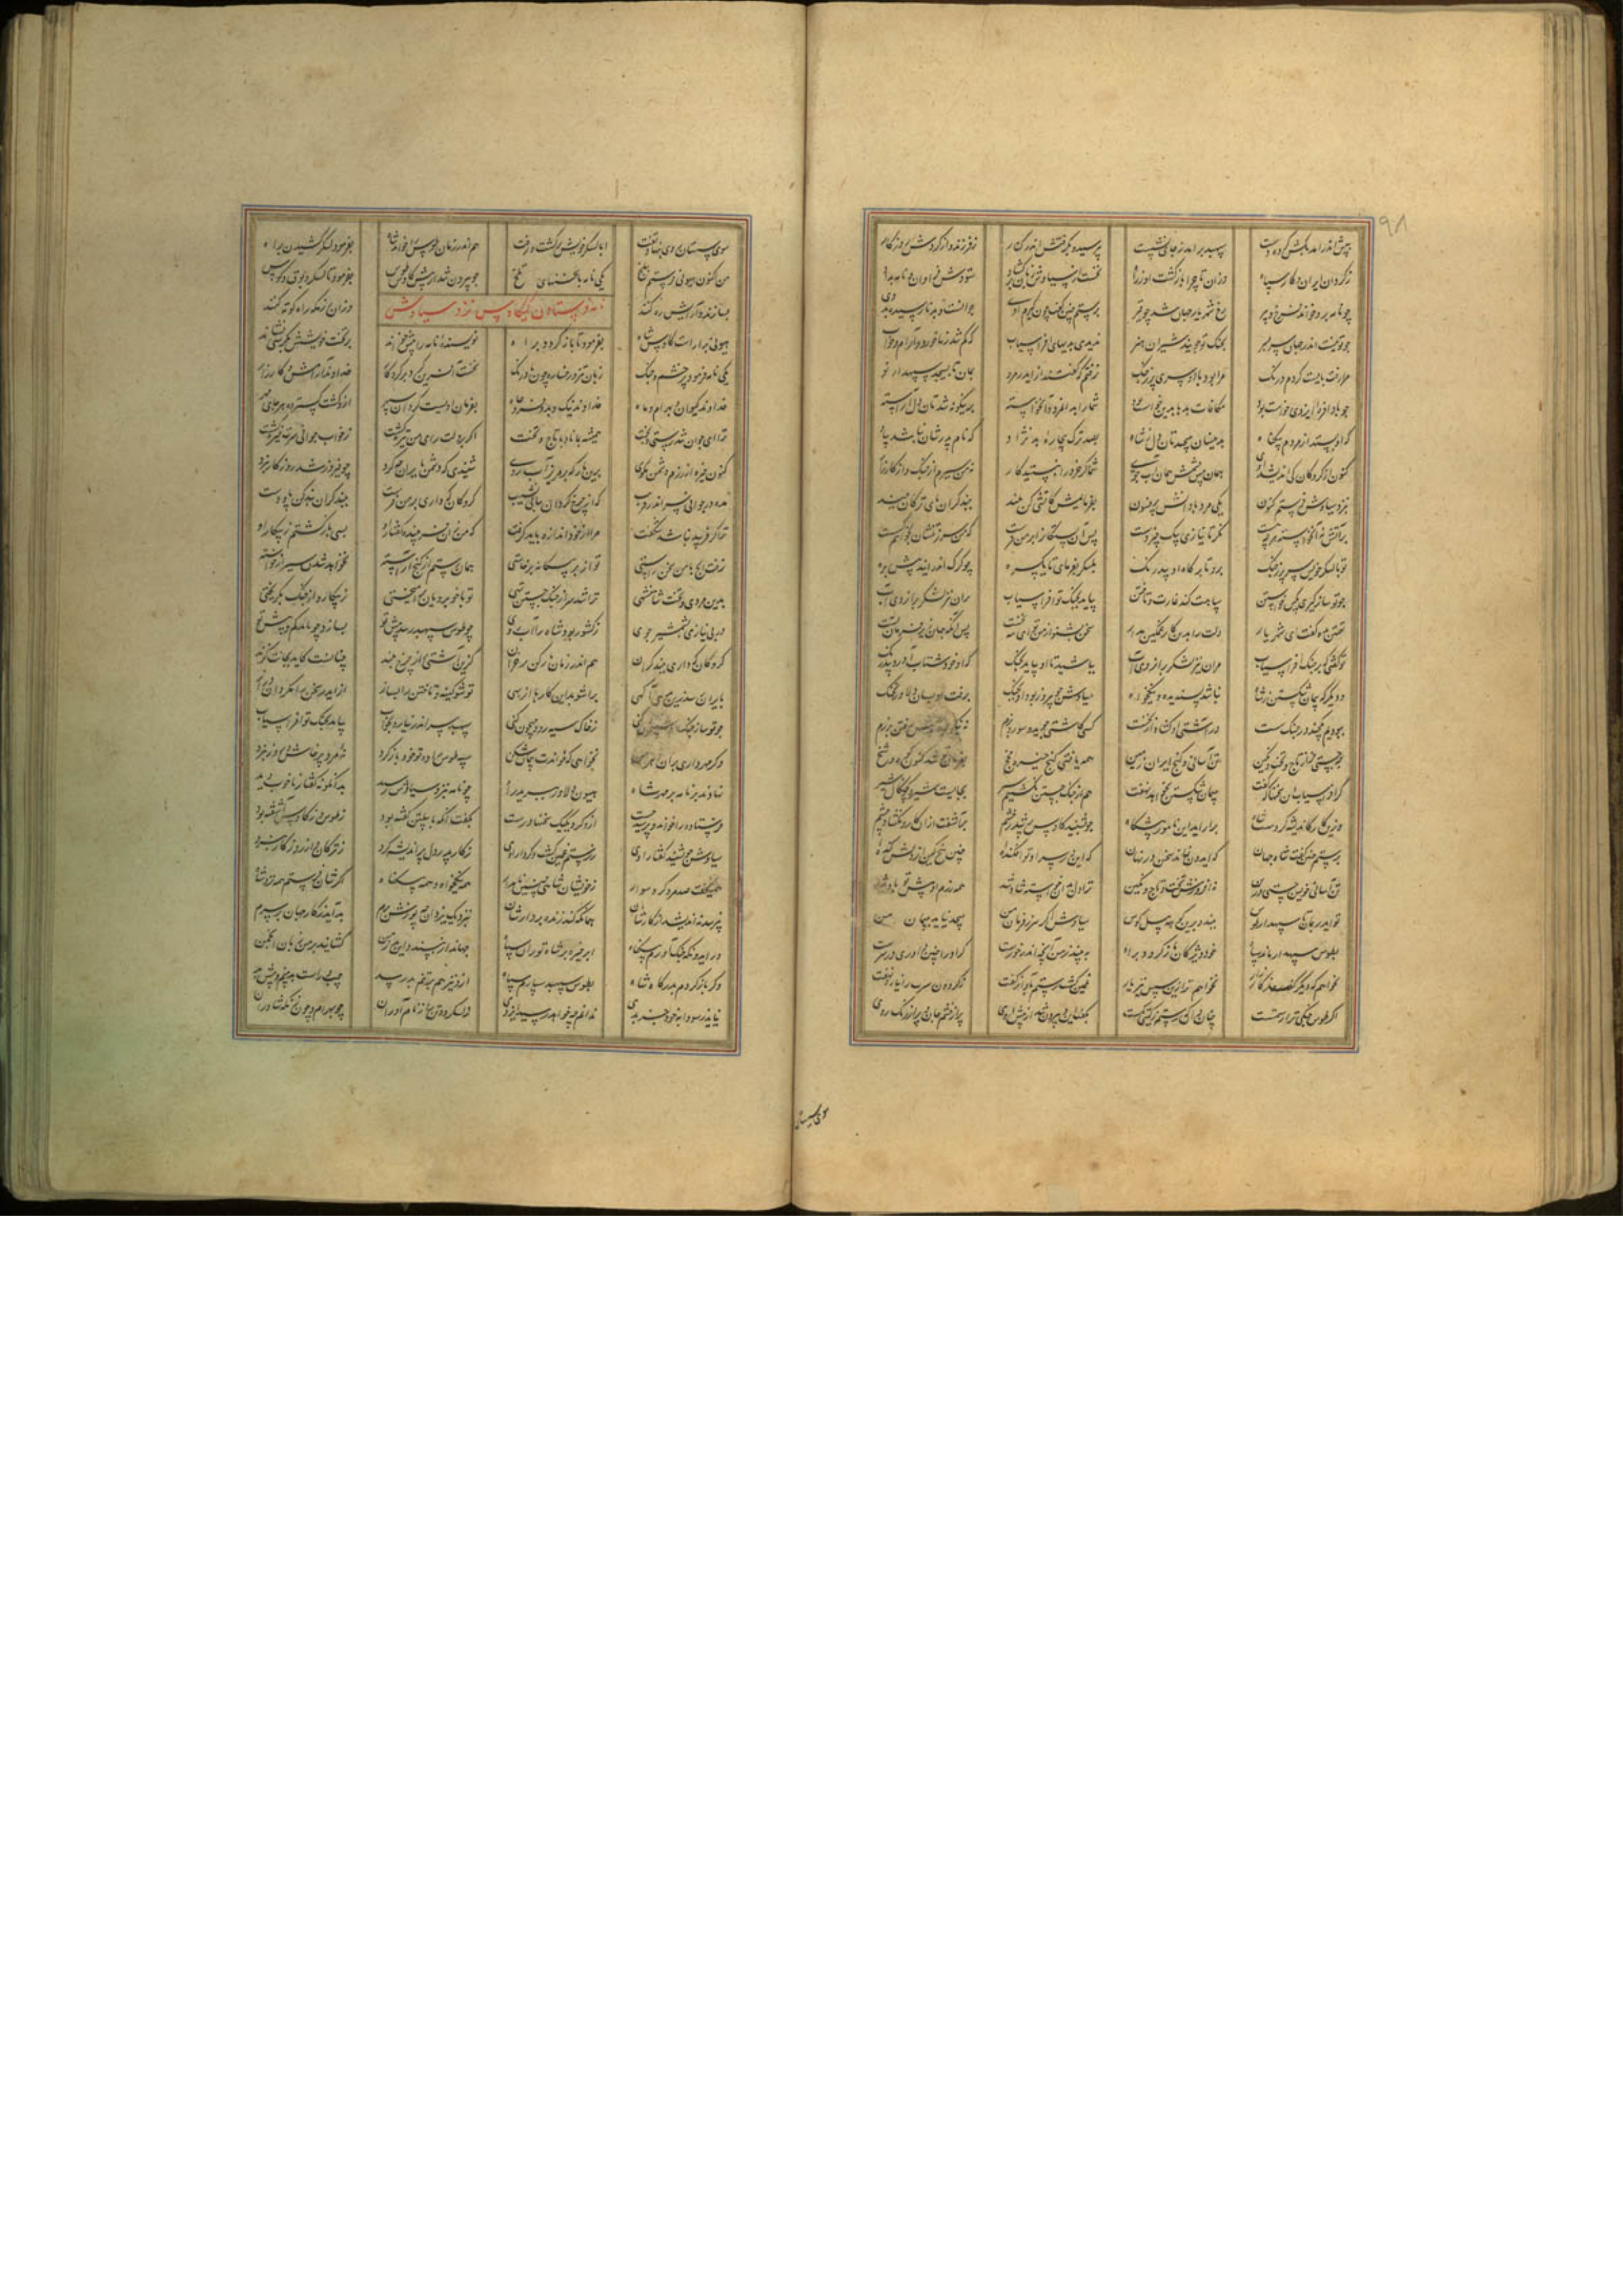 بپیش اندر آمد بکش کرده دست سپهبد برآمد ز جای نشست بپرسید و بگرفتش اندر کنار ز فرزند و از گردش روزگار
ز گردان ایران و کار سپاه وزان تا چرا بازگشت او ز راه نخست از سیاوش زبان برگشاد ستودش فراوان و نامه بداد
چو نامه برو خواند فرخ دبیر رخ شهریار جهان شد چو قیر برستم چنین گفت چون گیرم اوی جوانست و بد نارسیده بروی
چو تو نیست اندر جهان سربسر بجنگ تو جویند شیران هنر ندیدی بدیهای افراسیاب که گم شد ز ما خورد و آرام و خواب
مرا رفت بایست کردم درنگ مرا بود با او سری پر ز جنگ نرفتم که گفتند ز ایدر مرو بمان تا بسیجد سپهدار نو
چو بادافره ایزدی خواست بود مکافات بدها بدین خواست بود شما را بدان خواسته بدین گونه شد تان دل آراسته
کجا بستد از مردم بیگناه بدینسان بپیچدتان دل ز شاه بصد ترک بیچاره بد نژاد که نام پدرشان نباشد بیاد
کنون از گروگان کی اندیشد اوی همان پیش چشمش همان آب جوی شما گر خرد را نبستید کار نه من سیرم از جنگ و از کارزار
بنزد سیاوش فرستم کنون یکی مرد با دانش و پرفسون بفرمایمش کاتشی کن بلند ببند گران پای ترکان ببند
برآتش نه آن خواسته هرچه هست نگر تا نیازی بیک چیز دست پس آن بستگان را بر من فرست که من سر ز تنشان بخواهم گسست
تو با لشکر خویش سر پر ز جنگ برو تا بدرگاه او بیدرنگ بلشکر بفرمای تا یکسره چو گرگ اندر آیند پیش بره
چو تو ساز گیری کین آختن سپاهت کند غارت و تاختن بیاید بجنگ تو افراسیاب مران تیز لشکر بران روی آب
تهمتن بدو گفت ای شهریار دلت را بدین کار غمگین مدار سخن بشنو از من تو ای شه نخست پس آنگه جهان زیر فرمان تست
تو گفتی که بر جنگ افراسیاب مران تیز لشکر بران روی آب بباشید تا او بیاید بجنگ که او خود شتاب آورد بیدرنگ
و دیگر که پیمان شکستن ز شاه نباشد پسندیده و نیکخواه سیاوش چو پیروز بود او بجنگ برفت او بسان دلاور نهنگ
ببودیم یکچند در جنگ سست در آشتی او گشاد از نخست کسی کاشتی جوید و سور و بزم نه نیکو بود پیش رفتن برزم
چه جستی جز از تاج و تخت و نگین تن آسانی و گنج ایران زمین همه یافتی
گر افراسیاب این سخنها که گفت بپیمان شکستن بخواهد نهفت هم از جنگ جستن نگشتیم سیر بجایست شمشیر و چنگال شیر
وزین کار کاندیشه کردست شاه برآید ازین نامور پیشگاه چو بشنید کاوس پر شد ز خشم برآشفت ازان کار و بگشاد چشم
برستم چنین گفت شاه جهان که ایدون نماند سخن در نهان که این در سر او تو افکنده چنین بیخ کین از دلش کنده
تن آسانی خویش جستی درین نه افروزش تخت و تاج و نگین ترا دل خواسته شاد شد همه رزم او پیش تو باد شد
تو ایدر بمان تا سپهدار طوس ببندد برین کار بر پیل کوس سیاوش اگر سر ز فرمان من بپیچد نیاید بپیمان من
بطوس سپهبد سپارد سپاه خود و ویژگان باز گردد براه ببیند ز من آنچه اندر خورست گر او را چنین داوری در سرست
نخواهم که دیگر کنی کارزار نخواهم ترا زین سپس نیز یار غمین گشت رستم بآواز گفت که گردون سر من نیارد نهفت
اگر طوس جنگی تر از رستمست چنان دان که رستم ز گیتی کمست بگفت این و بیرون شد از پیش اوی پر از خشم جان و پر آژنگ روی
سوی سیستان
سوی سیستان روی بنهاد و تفت ابا لشکر خویش برگشت و رفت هم اندر زمان طوس را خواند شاه بفرمود لشکر کشیدن براه
من اکنون هیونی فرستم ببلخ یکی نامه با سخنهای تلخ چو بیرون شد از پیش کاوس طوس بفرمود تا لشکر و بوق و کوس
بسازند و آرایش ره کنند وزان رزمگه راه کوته کنند
نامه فرستادن کیکاوس نزد سیاوش
هیونی بیاراست کاوس شاه بفرمود تا باز گردد براه نویسنده نامه را پیش خواند بر تخت خویشش بکرسی نشاند
یکی نامه فرمود پر خشم و جنگ زبان تیز و رخساره چون بادرنگ نخست آفرین کرد بر کردگار خداوند آرامش و کارزار
خداوند کیوان و بهرام و ماه خداوند نیک و بد و فر و جاه بفرمان اویست گردان سپهر ازو گشت گسترده هر جای مهر
ترا ای جوان تندرستی و بخت همیشه بماناد با تاج و تخت اگر بر دلت رای من تیره گشت ز خواب جوانی سرت خیره گشت
کنون خیره آزرم دشمن مجوی برین بارگه بر مریز آب روی شنیدی که دشمن بایران چه کرد چو پیروز شد روزگار نبرد
منه در جوانی سر اندر فریب گر از چرخ گردان نیابی نشیب گروگان که داری بر من فرست ببند گران پای و دست
ترا گر فریبد نباشد شگفت مرا از خود اندازه باید گرفت که من زان فریبنده گفتار او بسی باز گشتم ز پیکار او
نرفت ایچ با من سخن ز آشتی همان رستم از گنج آراسته نخواهد شدن سیر از خواسته
بدین مردی و تخت شاهنشهی ترا شد سر از جنگ جستن تهی تو با خوبرویان برآمیختی ز پیکار و از جنگ بگریختی
در بی نیازی بشمشیر جوی ز کشور بود شاه را آبروی چو طوس سپهبد رسد پیش تو بسازد چو باید کم و بیش تو
گروگان که داری ببند گران هم اندر زمان بار کن بر خران کزین آشتی راز چرخ بلند چنانست کاید بجانت گزند
بایران رسد زین بدی آگهی برآشوبد این کارها از بهی تو شو کینه و تاختن را بساز از ایدر سخن برمگردان دراز
چو تو ساز جنگ و شبیخون کنی ز خاک سیه رود جیحون کنی سپهبد سر اندر نیارد بخواب بیاید بجنگ تو افراسیاب
وگر مهر داری بران اهرمن نخواهی که خوانندت پیمان شکن سپه طوس را ده تو خود باز گرد نه مرد پرخاش و روز نبرد
نهادند بر نامه بر مهر شاه هیون دلاور ببرید راه چو نامه بنزد سیاوش رسید بدانگونه گفتار ناخوب دید
فرستاده را خواند و پرسید چست ازو کرد یکیک سخنها درست بگفت آنکه با پیلتن گفته بود ز طوس و ز کاوس کآشفته بود
سیاوش چو بشنید گفتار اوی ز رستم غمین گشت و کردار اوی ز کار پدر دل پراندیشه کرد ز ترکان و از روزگار نبرد
همیگفت صد مرد گرد و سوار ز خویشان شاهی چنین نامدار همه نیکخواه و همه بیگناه اگرشان فرستم بنزدیک شاه
نپرسد نه اندیشد از کارشان همانگه کند زنده بر دارشان بنزدیک یزدان چه پوزش برم بد آید ز کار جهان بر سرم
ور ایدونکه جنگ آورم بیگناه ابر خیره بر شاه توران سپاه جهاندار نپسندد این بد ز من گشایند بر من زبان انجمن
وگر باز گردم بدرگاه شاه بطوس سپهبد سپارم سپاه ازو نیز هم بر تنم بد رسد چپ و راست بد بینم و پیش بد
نیاید ز سودابه خود جز بدی ندانم چه خواهد رسید ایزدی چو بهرام و چون زنگه شاوران